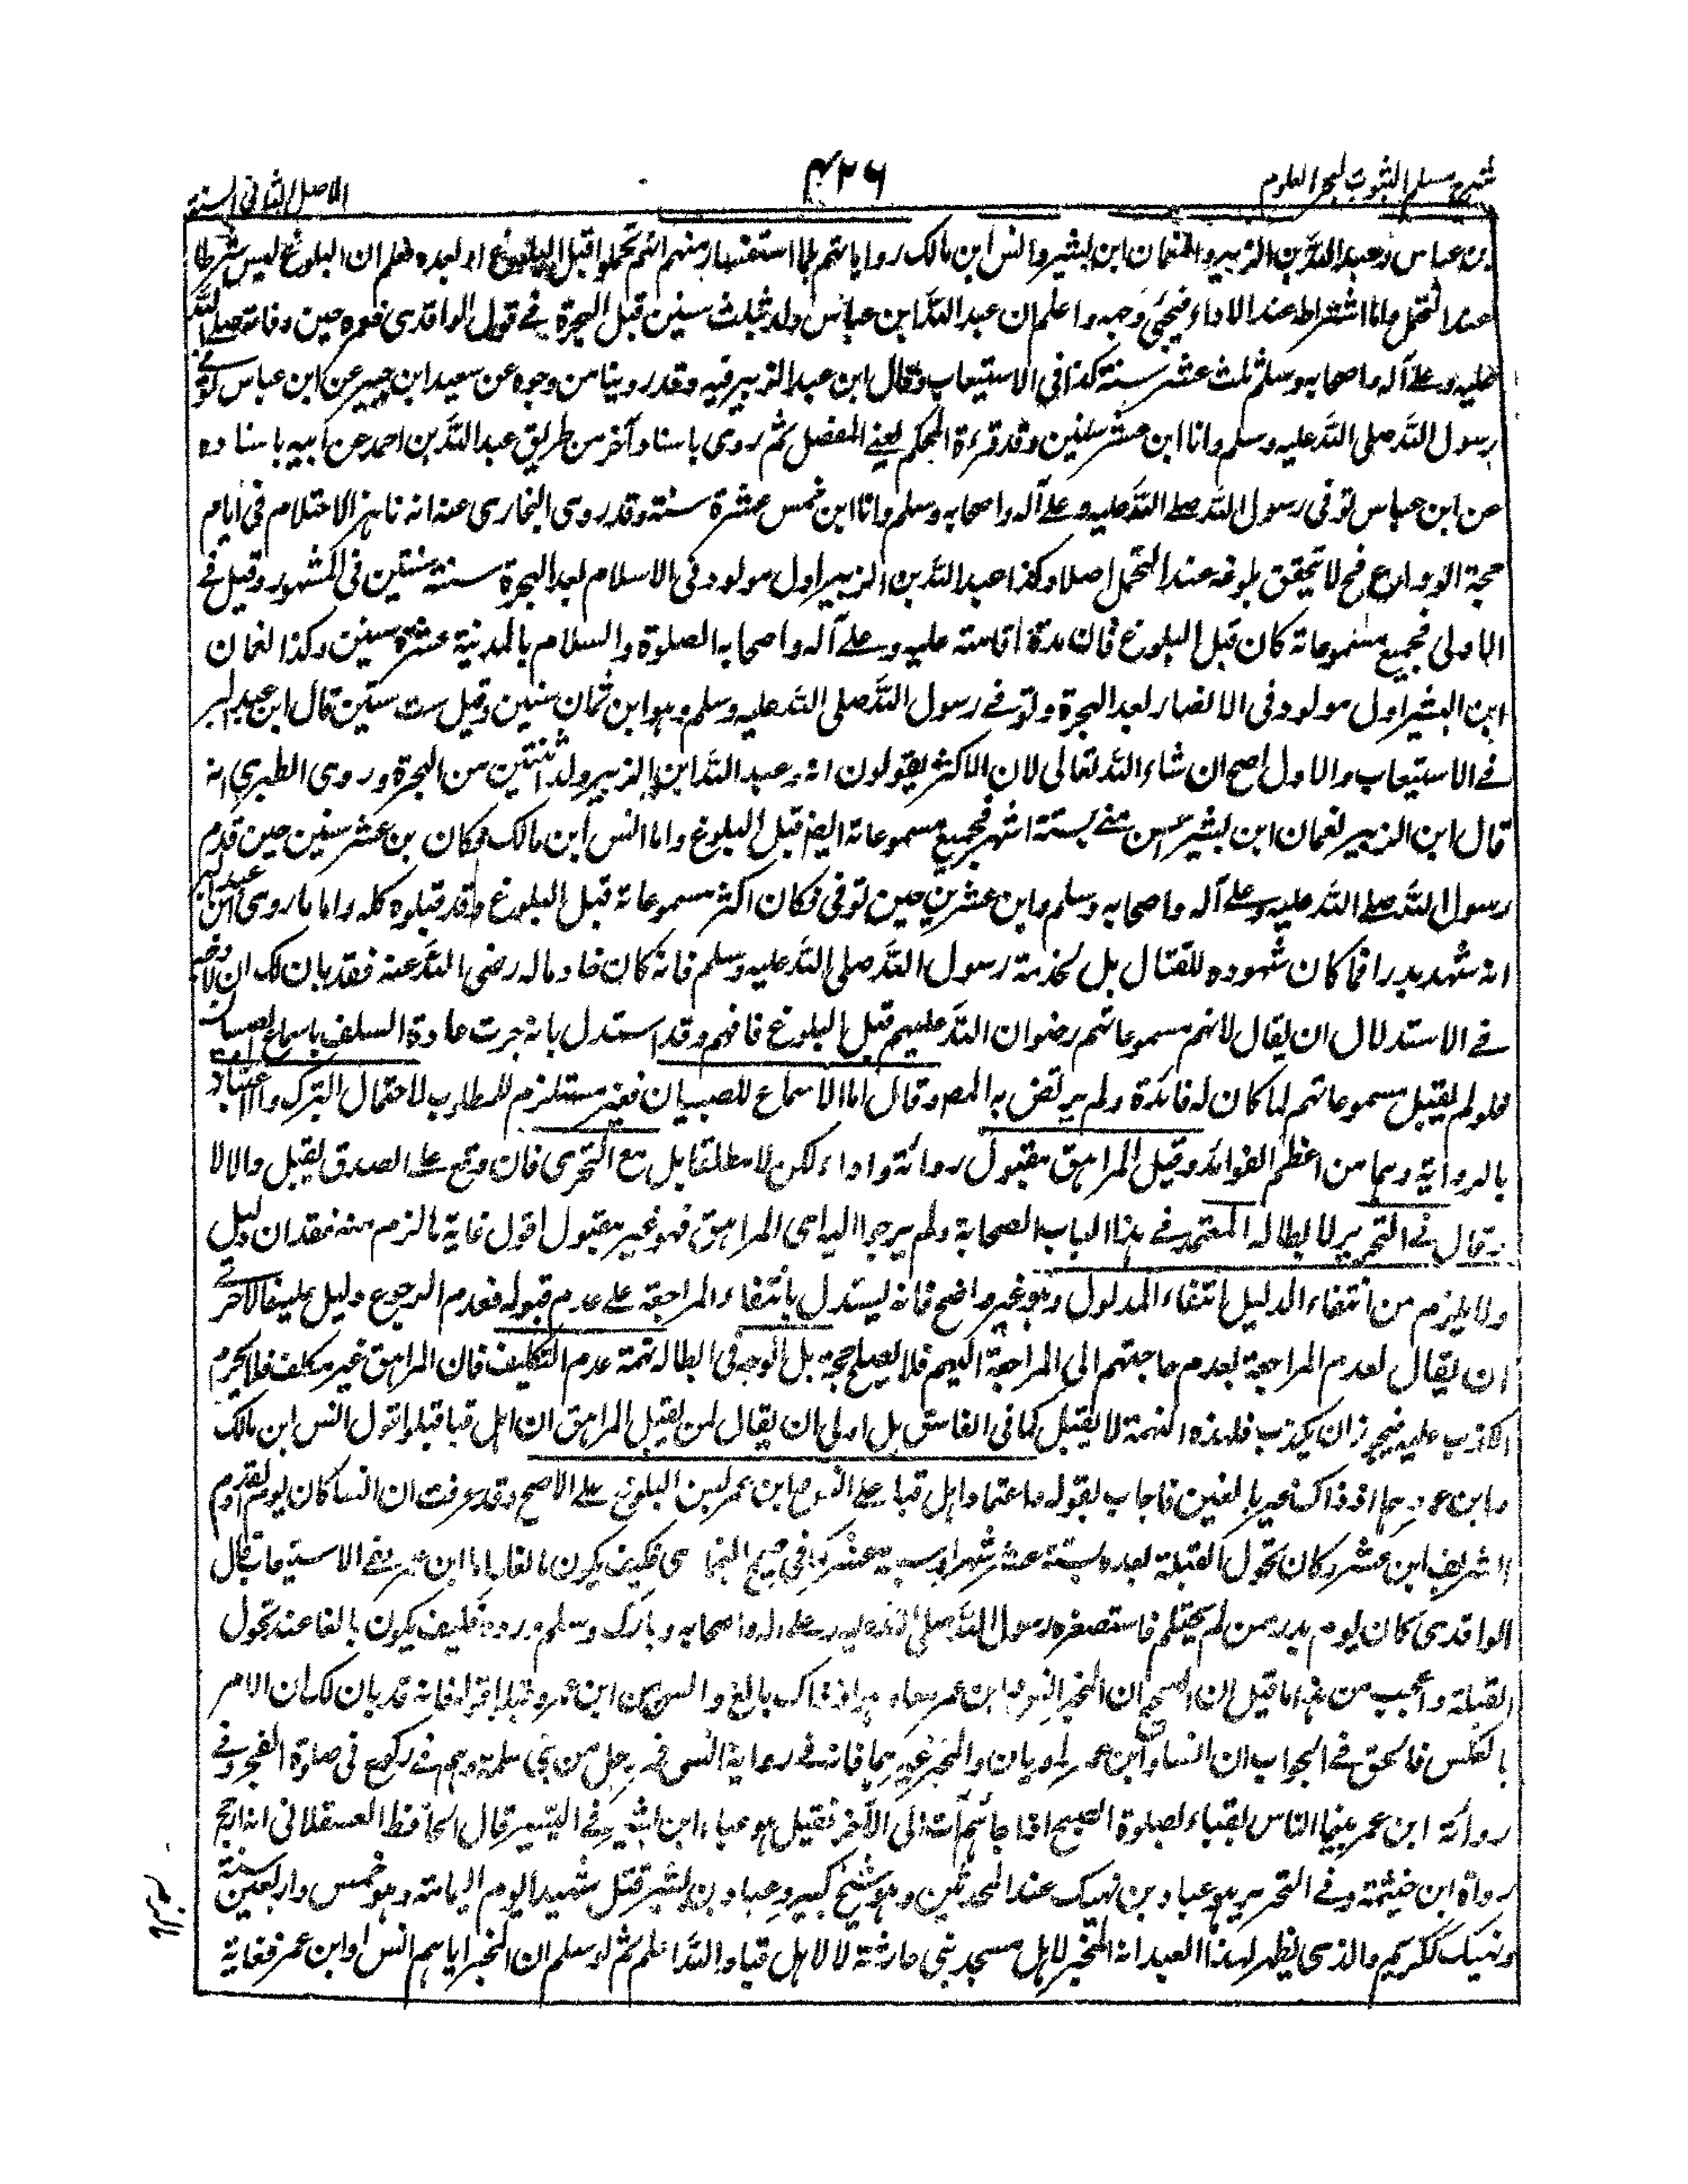 شرح مسلم الثبوت لبحر العلوم
۴۲۶
الاصل الثانی السنة
بن عباس وعبد الله بن الزبير والنعمان ابن بشير وانس ابن مالك رواياتهم بلا استفسار منهم انهم تحملوا قبل البلوغ او بعده فعلم ان البلوغ ليس شرطا
عند التحمل واما اشتراطه عند الاداء فيجيئ وجهه واعلم ان عبد الله ابن عباس ولد بثلث سنين قبل الهجرة في قول الواقدى فعمره حين وفاته صلى الله
عليه وعلى آله واصحابه وسلم ثلث عشر سنة كذا فى الاستيعاب وقال ابن عبد البر فيه وقد روينا من وجوه عن سعيد ابن جبير عن ابن عباس توفى
رسول الله صلى الله عليه وسلم وانا ابن عشر سنين وقد قرءة المحكم يعنے المفصل ثم روى باسناد آخر من طريق عبد الله بن احمد عن ابيه باسناده
عن ابن عباس توفى رسول الله صلى الله عليه وعلى آله واصحابه وسلم وانا ابن خمس عشرة سنة وقد روى البخارى عنه انه ناهز الاحتلام فى ايام
حجة الوداع فح لا تحقق بلوغه عند التحمل اصلا وكذا عبد الله بن الزبير اول مولود فى الاسلام بعد الهجرة سنة ثنتين فى المشهور وقيل في
الاولى فجميع مسموعاته كان قبل البلوغ فان مدة اقامته عليه وعلى آله واصحابه الصلوة والسلام بالمدينة عشرة سنين وكذا النعمان
ابن البشير اول مولود فى الانصار بعد الهجرة وتوفے رسول الله صلى الله عليه وسلم وهو ابن ثمان سنين وقيل ست سنين قال ابن عبد البر
في الاستيعاب والاول اصح ان شاء الله تعالى لان الاكثر يقولون انه وعبد الله ابن الزبير ولد اثنتين من الهجرة وروى الطبرى انه
قال ابن الزبير نعمان ابن بشير اسن منے بستة اشهر فجميع مسموعاته ايضا قبل البلوغ واما انس ابن مالك فكان بن عشر سنين حين قدم
رسول الله صلى الله عليه وعلى آله واصحابه وسلم وابن عشرين حين توفى فكان اكثر مسموعاته قبل البلوغ وقد قبلوه كله واما ما روى ابن عبد البر
انه شهد بدرا فما كان شهوده للقتال بل لخدمة رسول الله صلى الله عليه وسلم فانه كان خادما له رضى الله عنه فقد بان لك ان الاوجه
في الاستدلال ان يقال لانهم مسموعاتهم رضوان الله عليهم قبل البلوغ فافهم وقد استدل بانه جرت عادة السلف باسماع الصبيان
فلو لم يقبل مسموعاتهم لما كان له فائدة ولم يرتض به المصـ وقال اما الاسماع للصبيان فغير مستلزم للمطلوب لاحتمال التبرك والاعتياد
بالرواية وهما من اعظم الفوائد وقيل المراهق مقبول رواية واداء لكن لا مطلقا بل مع التحرى فان وقع على الصدق يقبل والا لا
وقال في التحرير لابطاله المعتمد في هذا الباب الصحابة ولم يرجعوا اليه اى المراهق فهو غير مقبول اقول غاية ما لزم منه فقدان دليل
ولا يلزم من انتفاء الدليل انتفاء المدلول وهو غير واضح فانه يستدل بانتفاء المراجعة على عدم قبوله فعدم الرجوع دليل عليه فالاحرى
ان يقال لعدم المراجعة لعدم حاجتهم الى المراجعة اليهم فلا يصلح حجة بل الوجه فى ابطاله تهمة عدم التكليف فان المراهق غير مكلف فلا يحرم
الكذب عليه فيجوز ان يكذب فلهذه التهمة لا يقبل كما فى الفاسق بل اولى ان يقال لمن يقبل المراهق ان اهل قبا قبلوا قول انس ابن مالك
وابن عمر وهما اذ ذاك غير بالغين فاجاب بقوله واعتماد اهل قبا على انس وابن عمر لسن البلوغ على الاصح وقد عرفت ان انسا كان يوم القدوم
الشريف ابن عشر وكان تحول القبلة بعده بستة عشر شهرا او سبعة عشر كما فى صحيح البخارى فكيف يكون بالغا واما ابن عمر ففے الاستيعاب قال
الواقدى كان يوم بدر ممن لم يحتلم فاستصغره رسول الله صلى الله عليه وعلى آله واصحابه وبارك وسلم ورده فكيف يكون بالغا عند تحول
القبلة واعجب من هذا ما قيل ان الصحيح ان المخبر انس وابن عمر بالغ والسن ابن عمر فانه قد بان لك ان الامر
بالعكس فالحق في الجواب ان انسا وابن عمر راويان والمخبر غيرهما فانه في رواية انس فمر رجل من بنى سلمة وهم في ركوع فى صلوة الفجر وفي
رواية ابن عمر بينما الناس بقباء لصلوة الصبح اذا جاءهم آت الى الآخر فقيل هو عباد ابن بشير في التيسير قال الحافظ العسقلانى انه ارجح
رواة ابن خيثمة وفي التحرير هو عباد بن نهيك عند المحدثين وهو شيخ كبير وعباد بن بشر قتل شهيدا يوم اليمامة وهو خمس واربعين سنة
ونهيك ككريم والذى يظهر لهذا العبد انه المخبر لاهل مسجد بنى حارثة لا لاهل قبا والله اعلم ثم لو سلم ان المخبر اياهم انس او ابن عمر فغاية